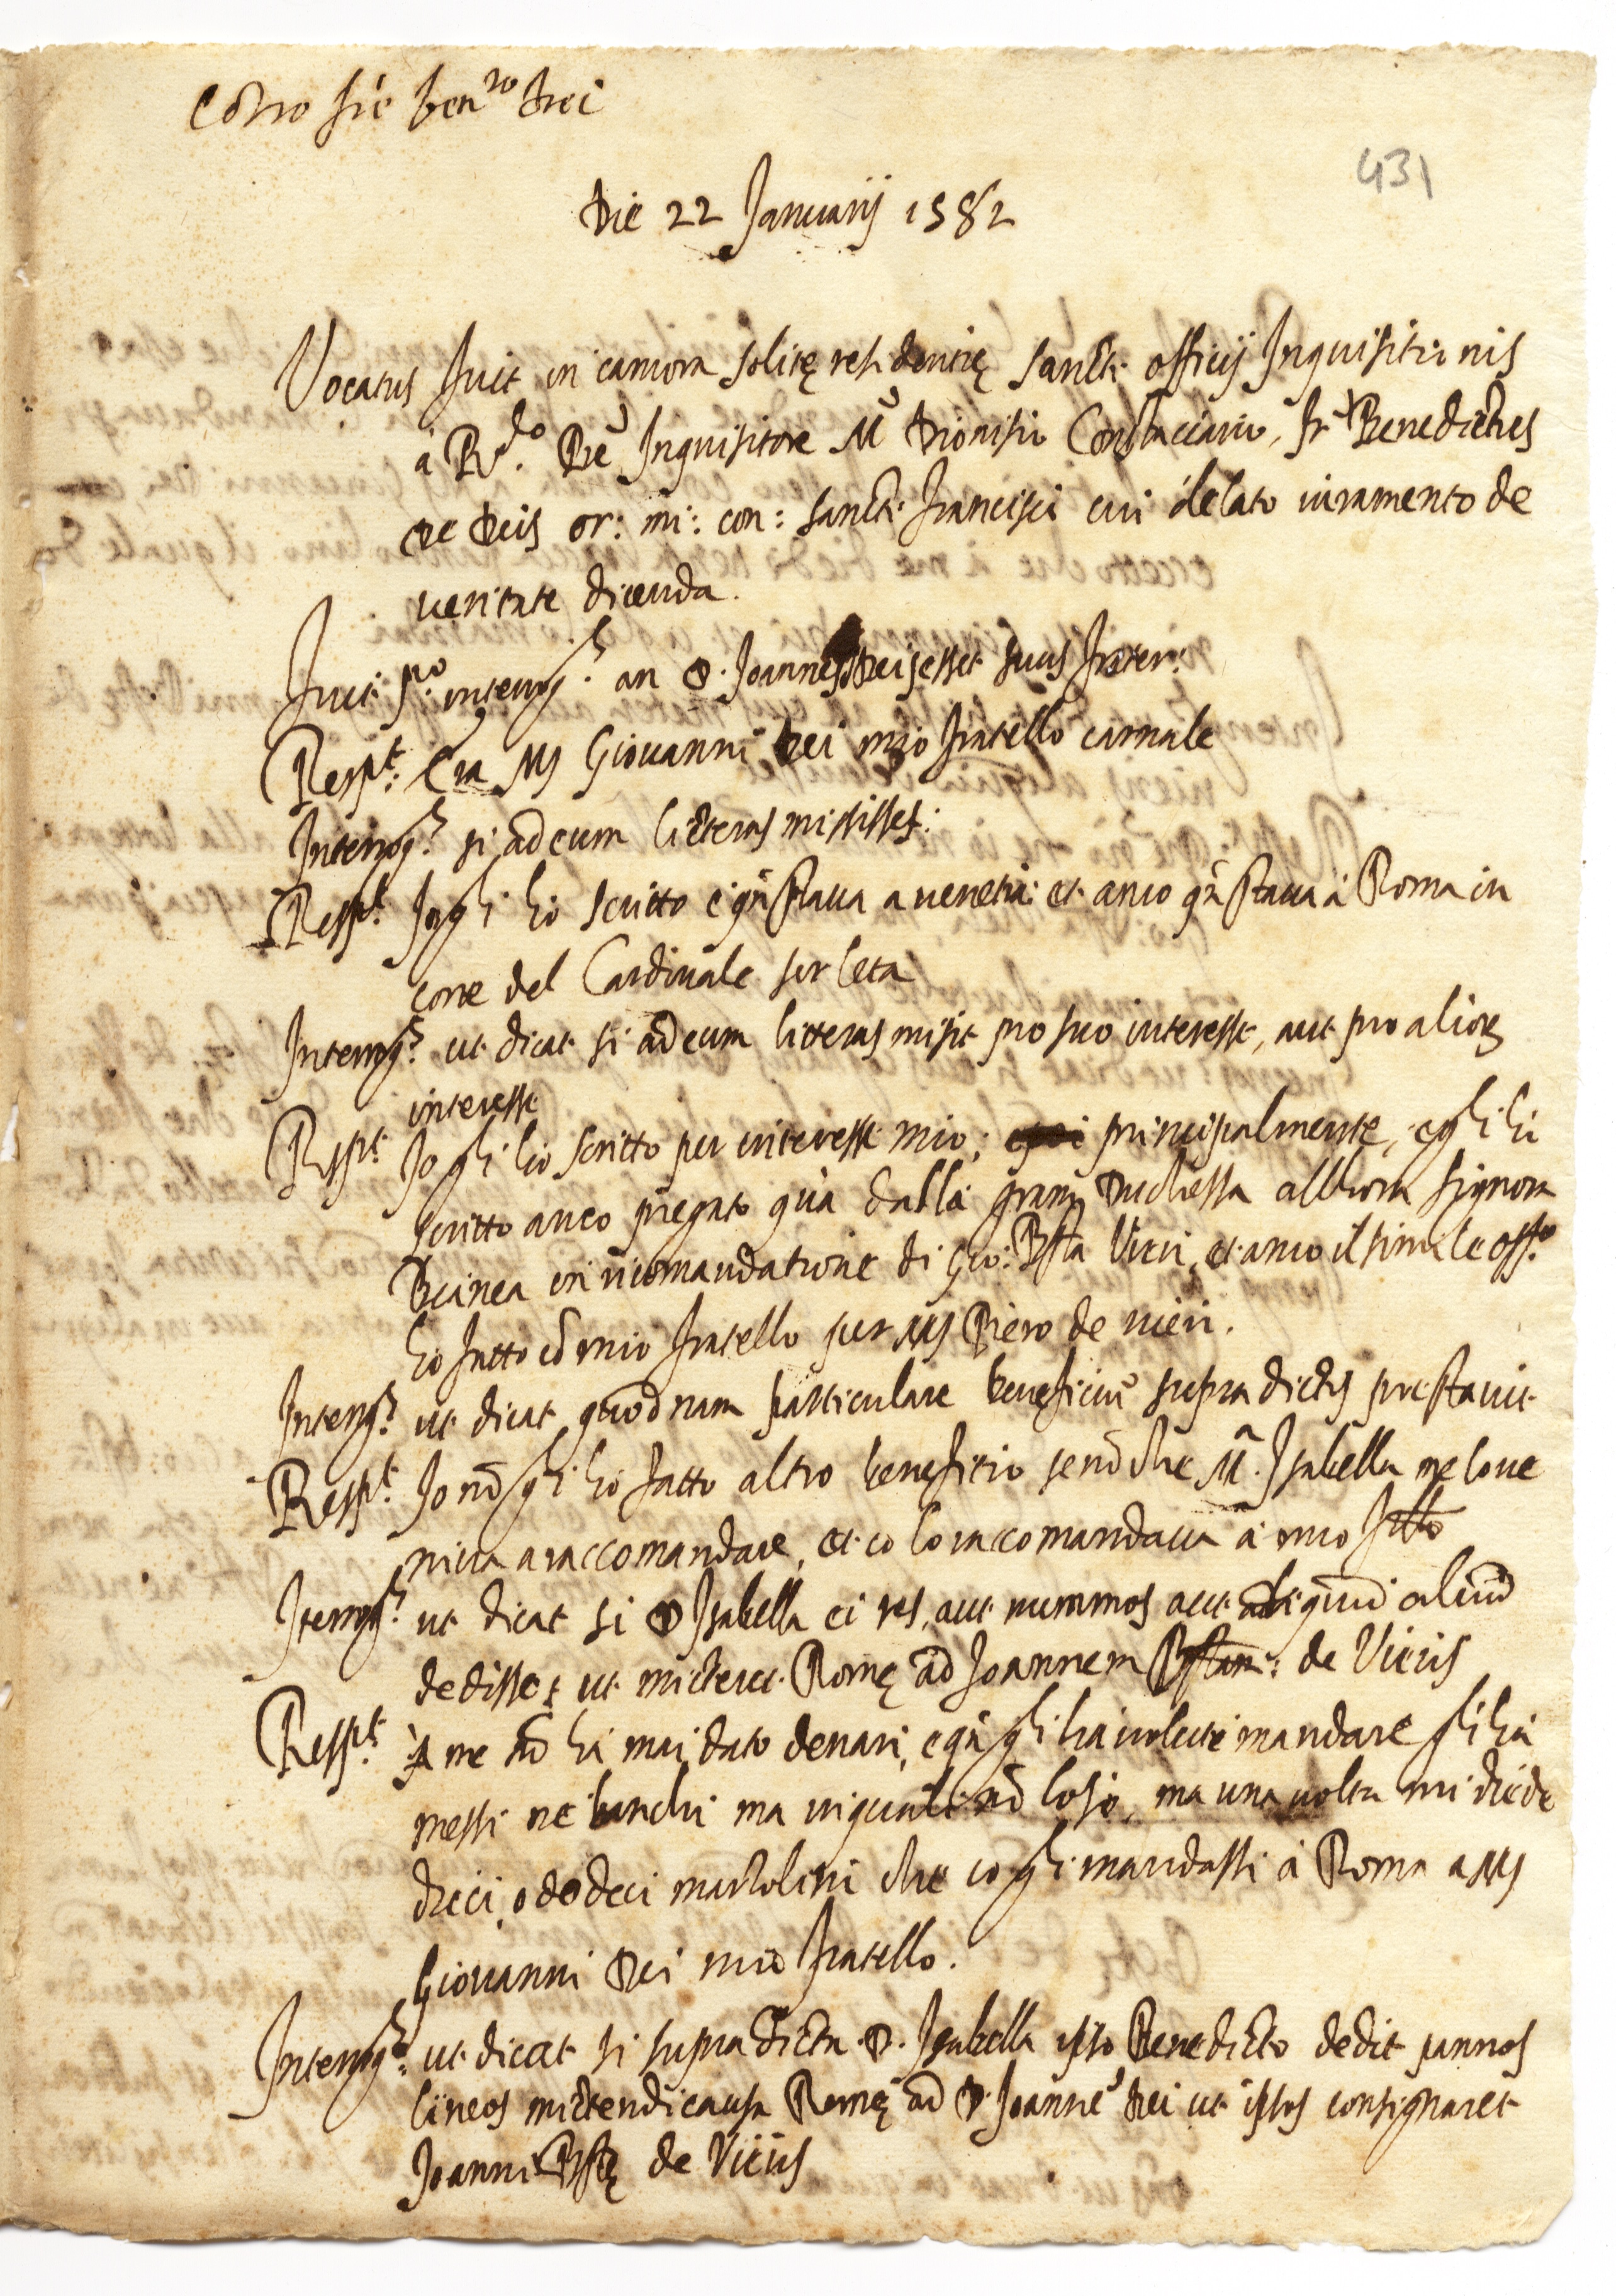 Cõtro frẽ ben.to Dei
431
Die 22 Januarij 1582
Vocatus fuit in camera solitę residentię sancti officij Inquisitionis
a R.do Prẽ Inquisitore Mo Dionisio Costacciario, fr. Benedictus
de Deis or: mi: con: sancti francisci cui delato iuramento de
ueritate dicenda.
Fuit po interrog.s an D. Joannes Deis esset suus frater:
Resp.t Era Ms Giouanni Dei mio fratello carnale
Interrog.s si ad eum litteras misisset:
Resp.t Jo gli ho scritto e qñ staua a uenetia: et anco qñ staua à Roma in
corte del Cardinale sirleta
Interrog.s ut dicat si ad eum litteras misit pro suo interesse, aut pro alior
interesse
Resp.t Jo gli ho scritto per interesse mio; principalmente, e gli hò
scritto anco pregato quà dalla gran Duchessa allhora signora
Bianca in ricomandatione di Gio: Bsta Vieri, et anco il simile offo
ho fatto cõ mio fratello per Ms Piero de uieri.
Interrog.s ut dicat quod nam particulare beneficiũ supradictis prestauit
Resp.t Jo nõ gli ho fatto altro benefitio se nõ che Ma Isabella me lo ue
niua a raccomandare, et io lo racomandaua à mio frllo
Iterrog.s ut dicat si D Isabella ei res, aut nummos aut aliquid aliud
dedisset ut micteret Romę ad Joannem Bstam: de Vieriis
Resp.t A me nõ hà mai dato denari, e qñ gli hà uoluti mandare gli hà
messi ne banchi ma in quali nõ lo so, ma una uolta mi diede
dieci, o dodeci martolini che io gli mandassi à Roma a Ms
Giouanni Dei mio fratello.
Interrog.s ut dicat si supradicta D. Isabella ipso Benedicto dedit pannos
lineos mictendi causa Romę ad D. Joannẽ Dei ut ipsos consignaret
Joanni Bstę de Vieriis